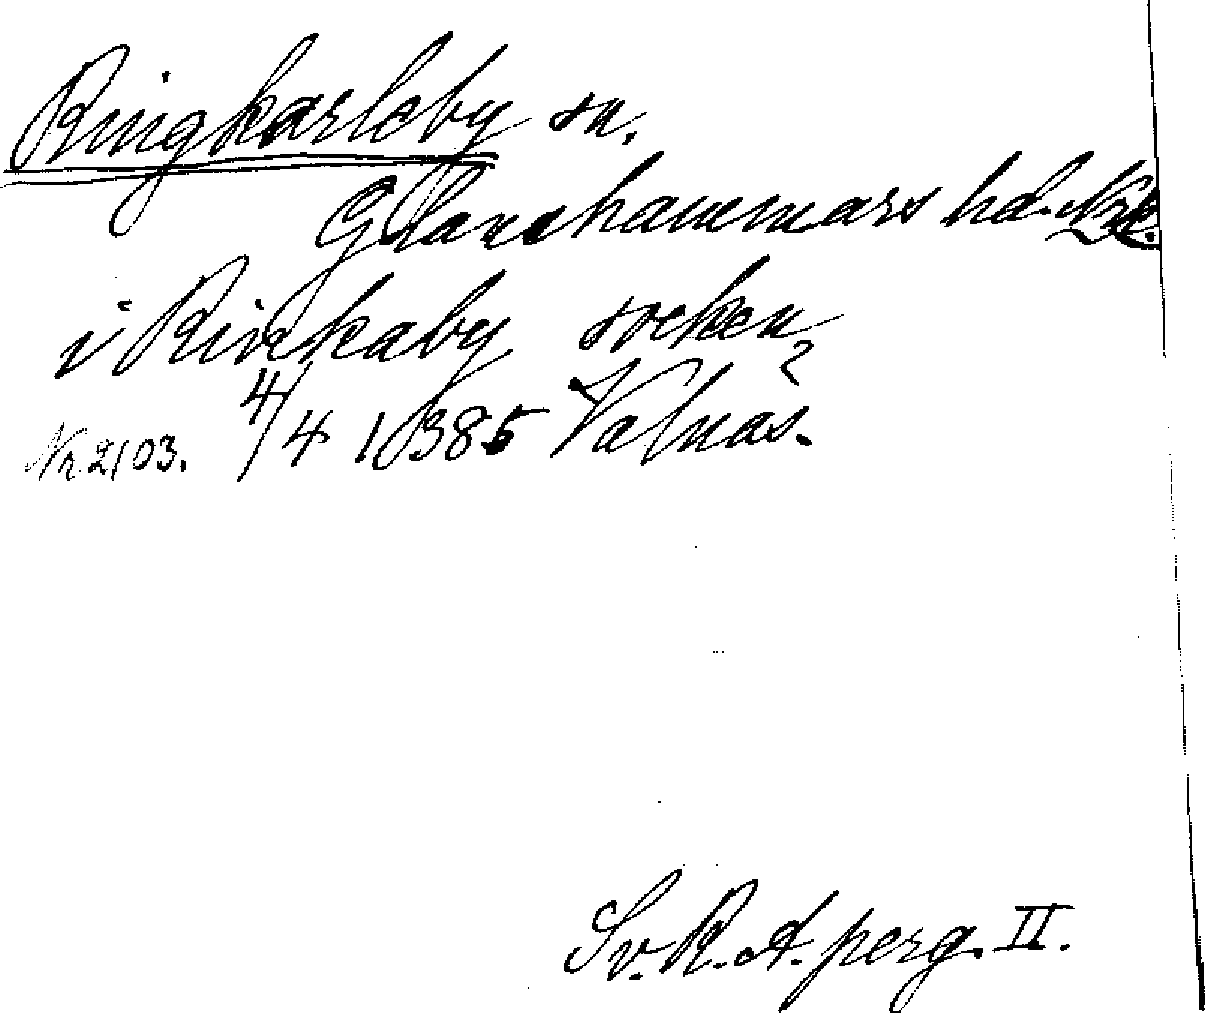 Ringkarleby sn.
Glanshammars hd.
i Rinkaby socken
Nr 2103. 4/4 1385 Valnäs.
?
Sv. R. A. perg. II.